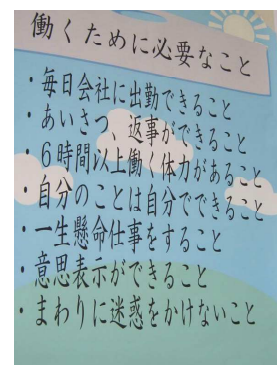 働くために必要なこと
・毎日会社に出勤できること
・あいさつ、返事ができること
・6時間以上働く体力があること
・自分のことは自分でできること
・一生懸命仕事をすること
・意思表示ができること
・まわりに迷惑をかけないこと